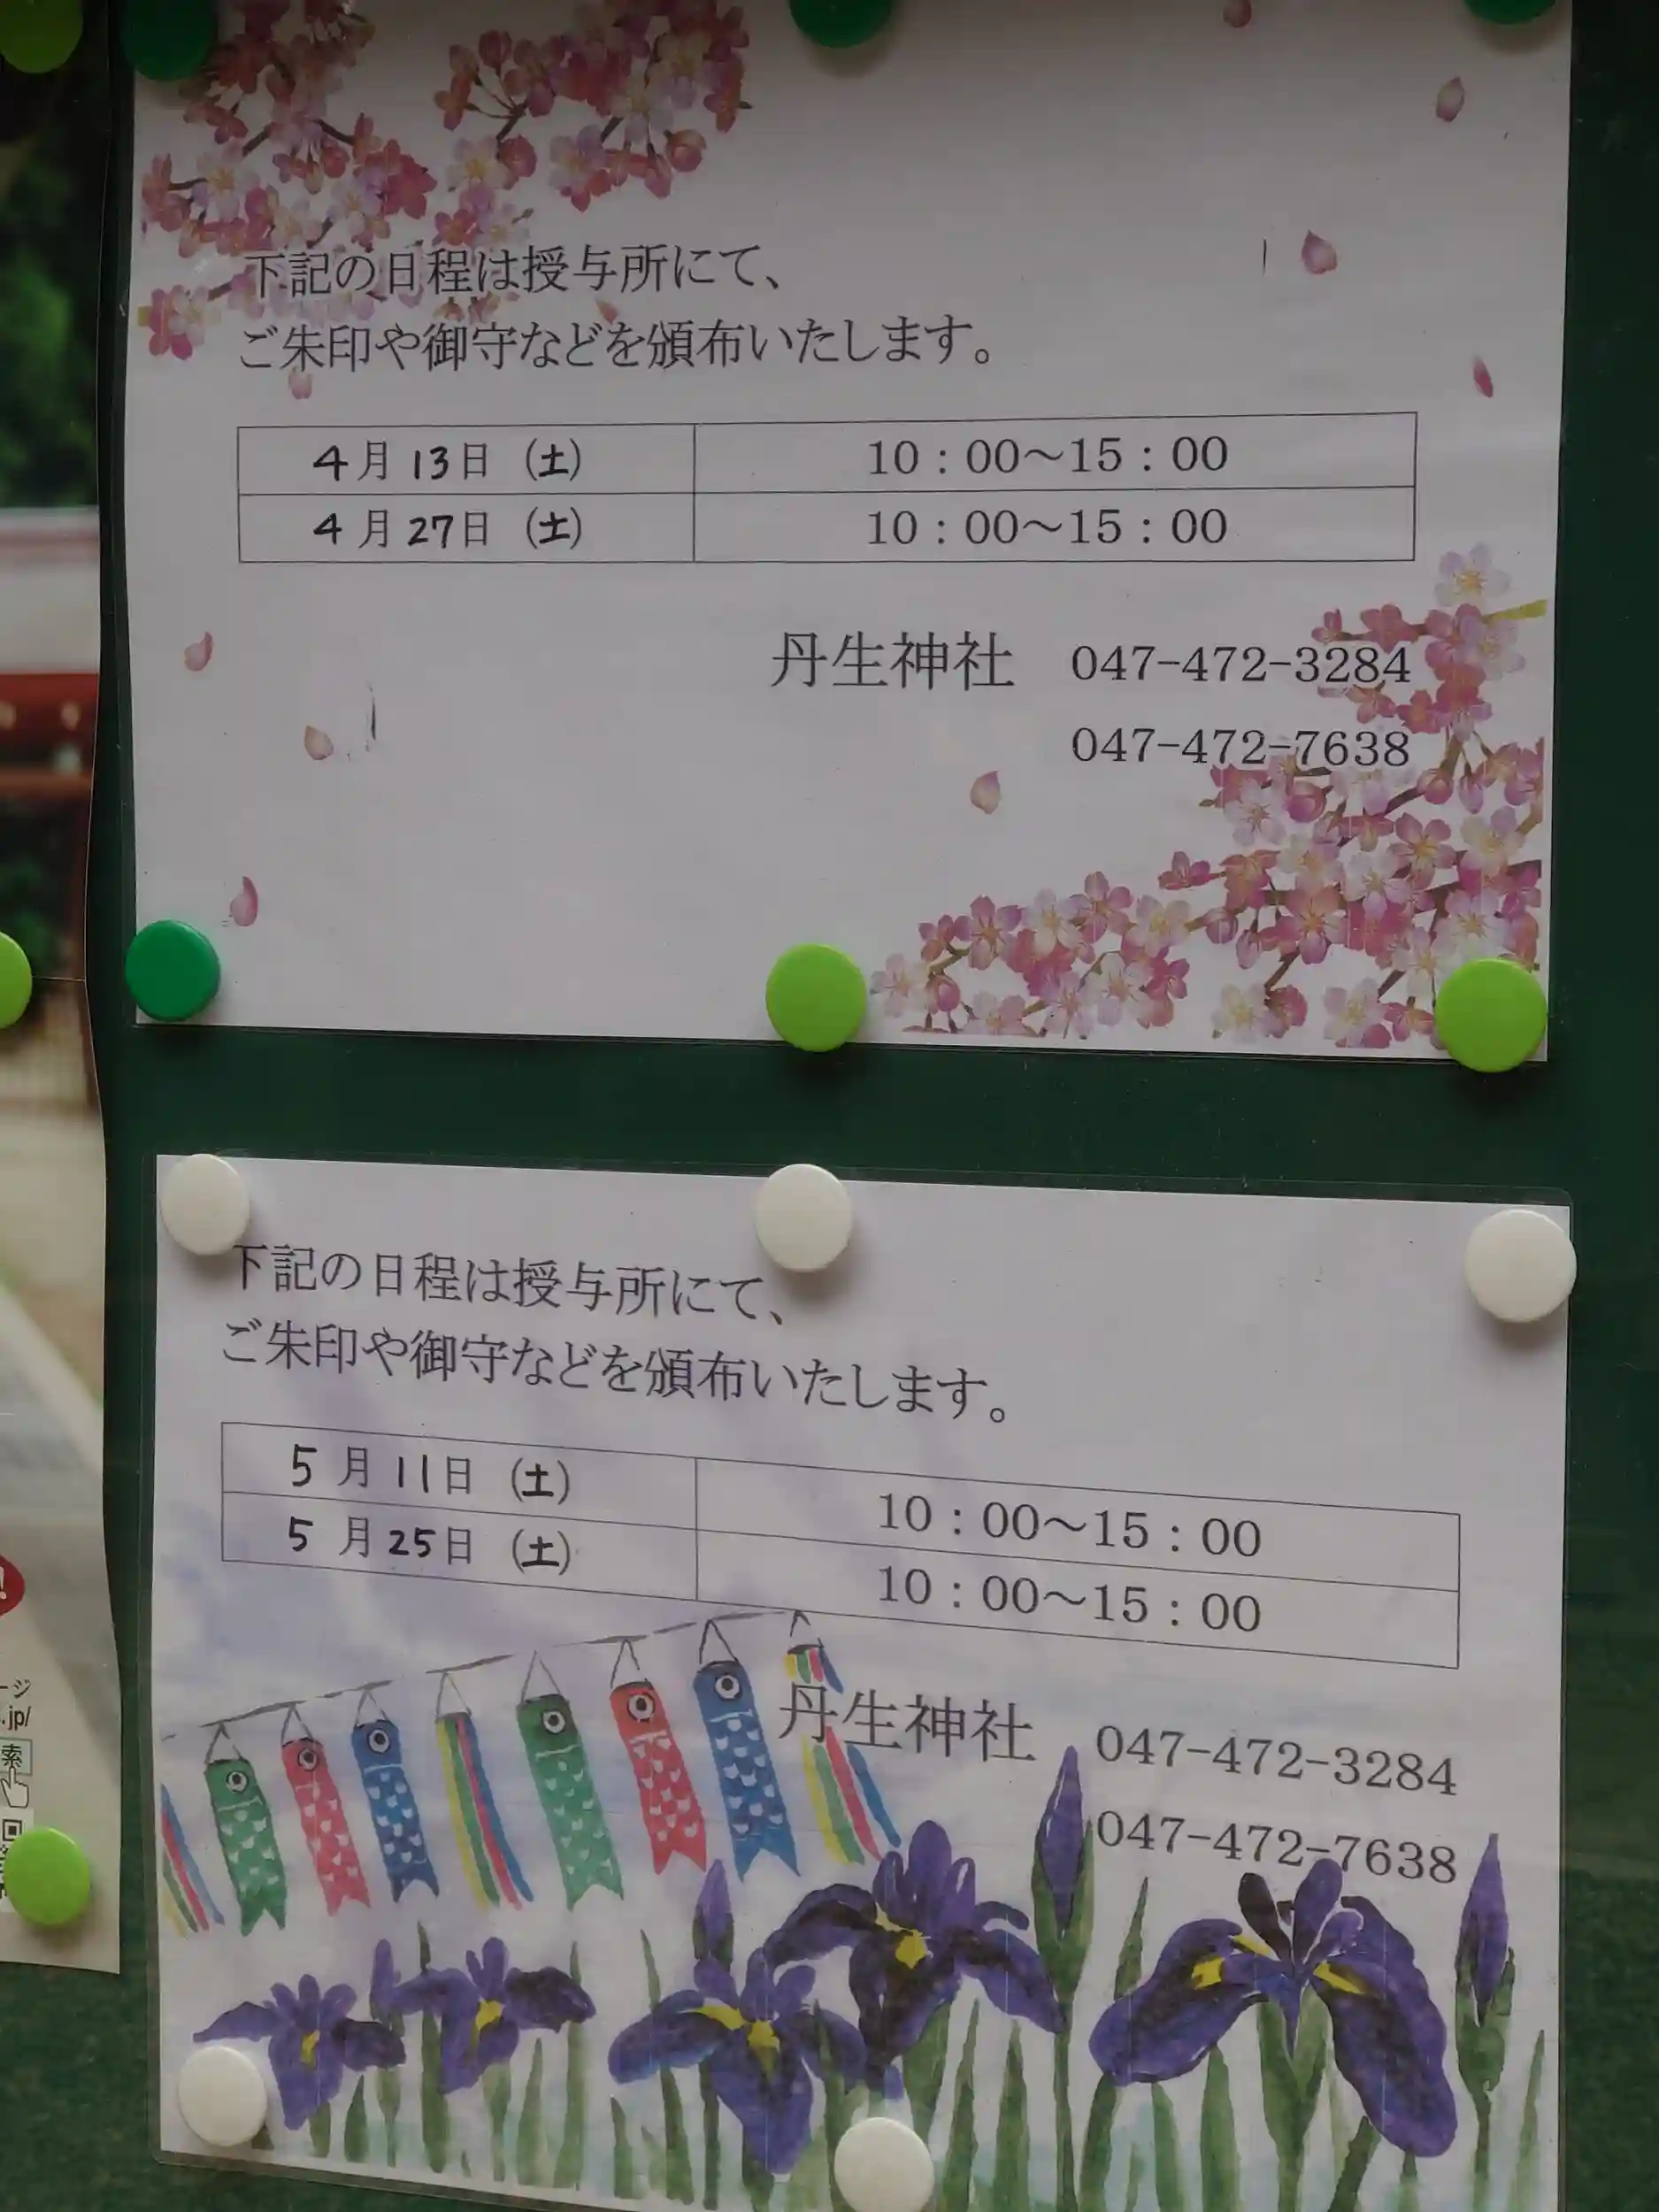 下記の日程は授与所にて、
ご朱印や御守などを頒布いたします。
4月13日（土） 10：00～15：00
4月27日（土） 10：00～15：00
丹生神社 047-472-3284
047-472-7638
下記の日程は授与所にて、
ご朱印や御守などを頒布いたします。
5月11日（土） 10：00～15：00
5月25日（土） 10：00～15：00
丹生神社 047-472-3284
047-472-7638
ージ
.jp/
索